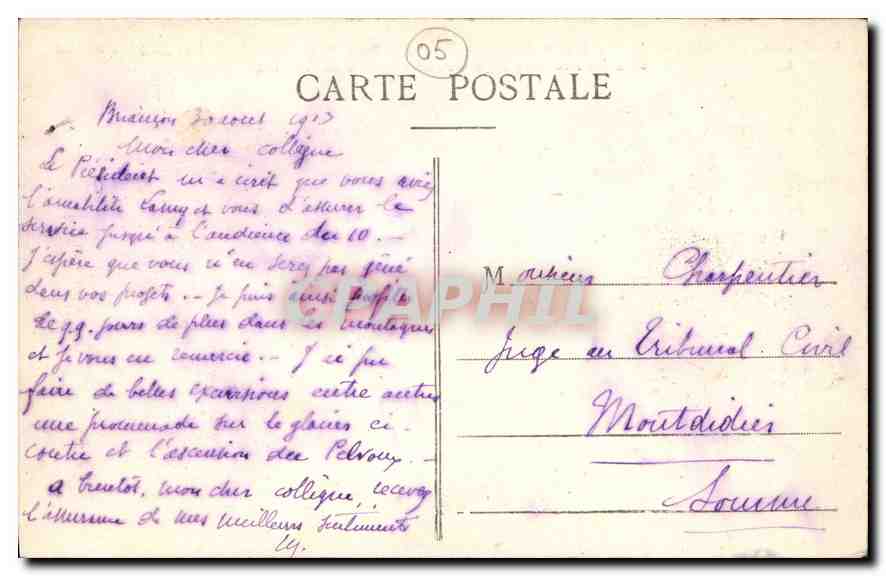 05
CARTE POSTALE
Briançon 30 aout 1913
Mon cher collègue
Le Président m'a écrit que vous aviez
l'amabilité et vous d'assurer le
service jusqu'à l'audience du 10. —
J'espère que vous n'en serez pas gêné
dans vos projets. — Je puis ainsi
de qq. jours de plus dans les montagnes
et je vous en remercie. — J'ai pu
faire de belles excursions entre autres
une promenade sur le glacier ci-
contre et l'ascension du Pelvoux. —
a bientôt, mon cher collègue, recevez
l'assurance de mes meilleurs sentiments
Monsieur Charpentier
Juge au Tribunal Civil
Montdidier
Somme
CPAPHIL